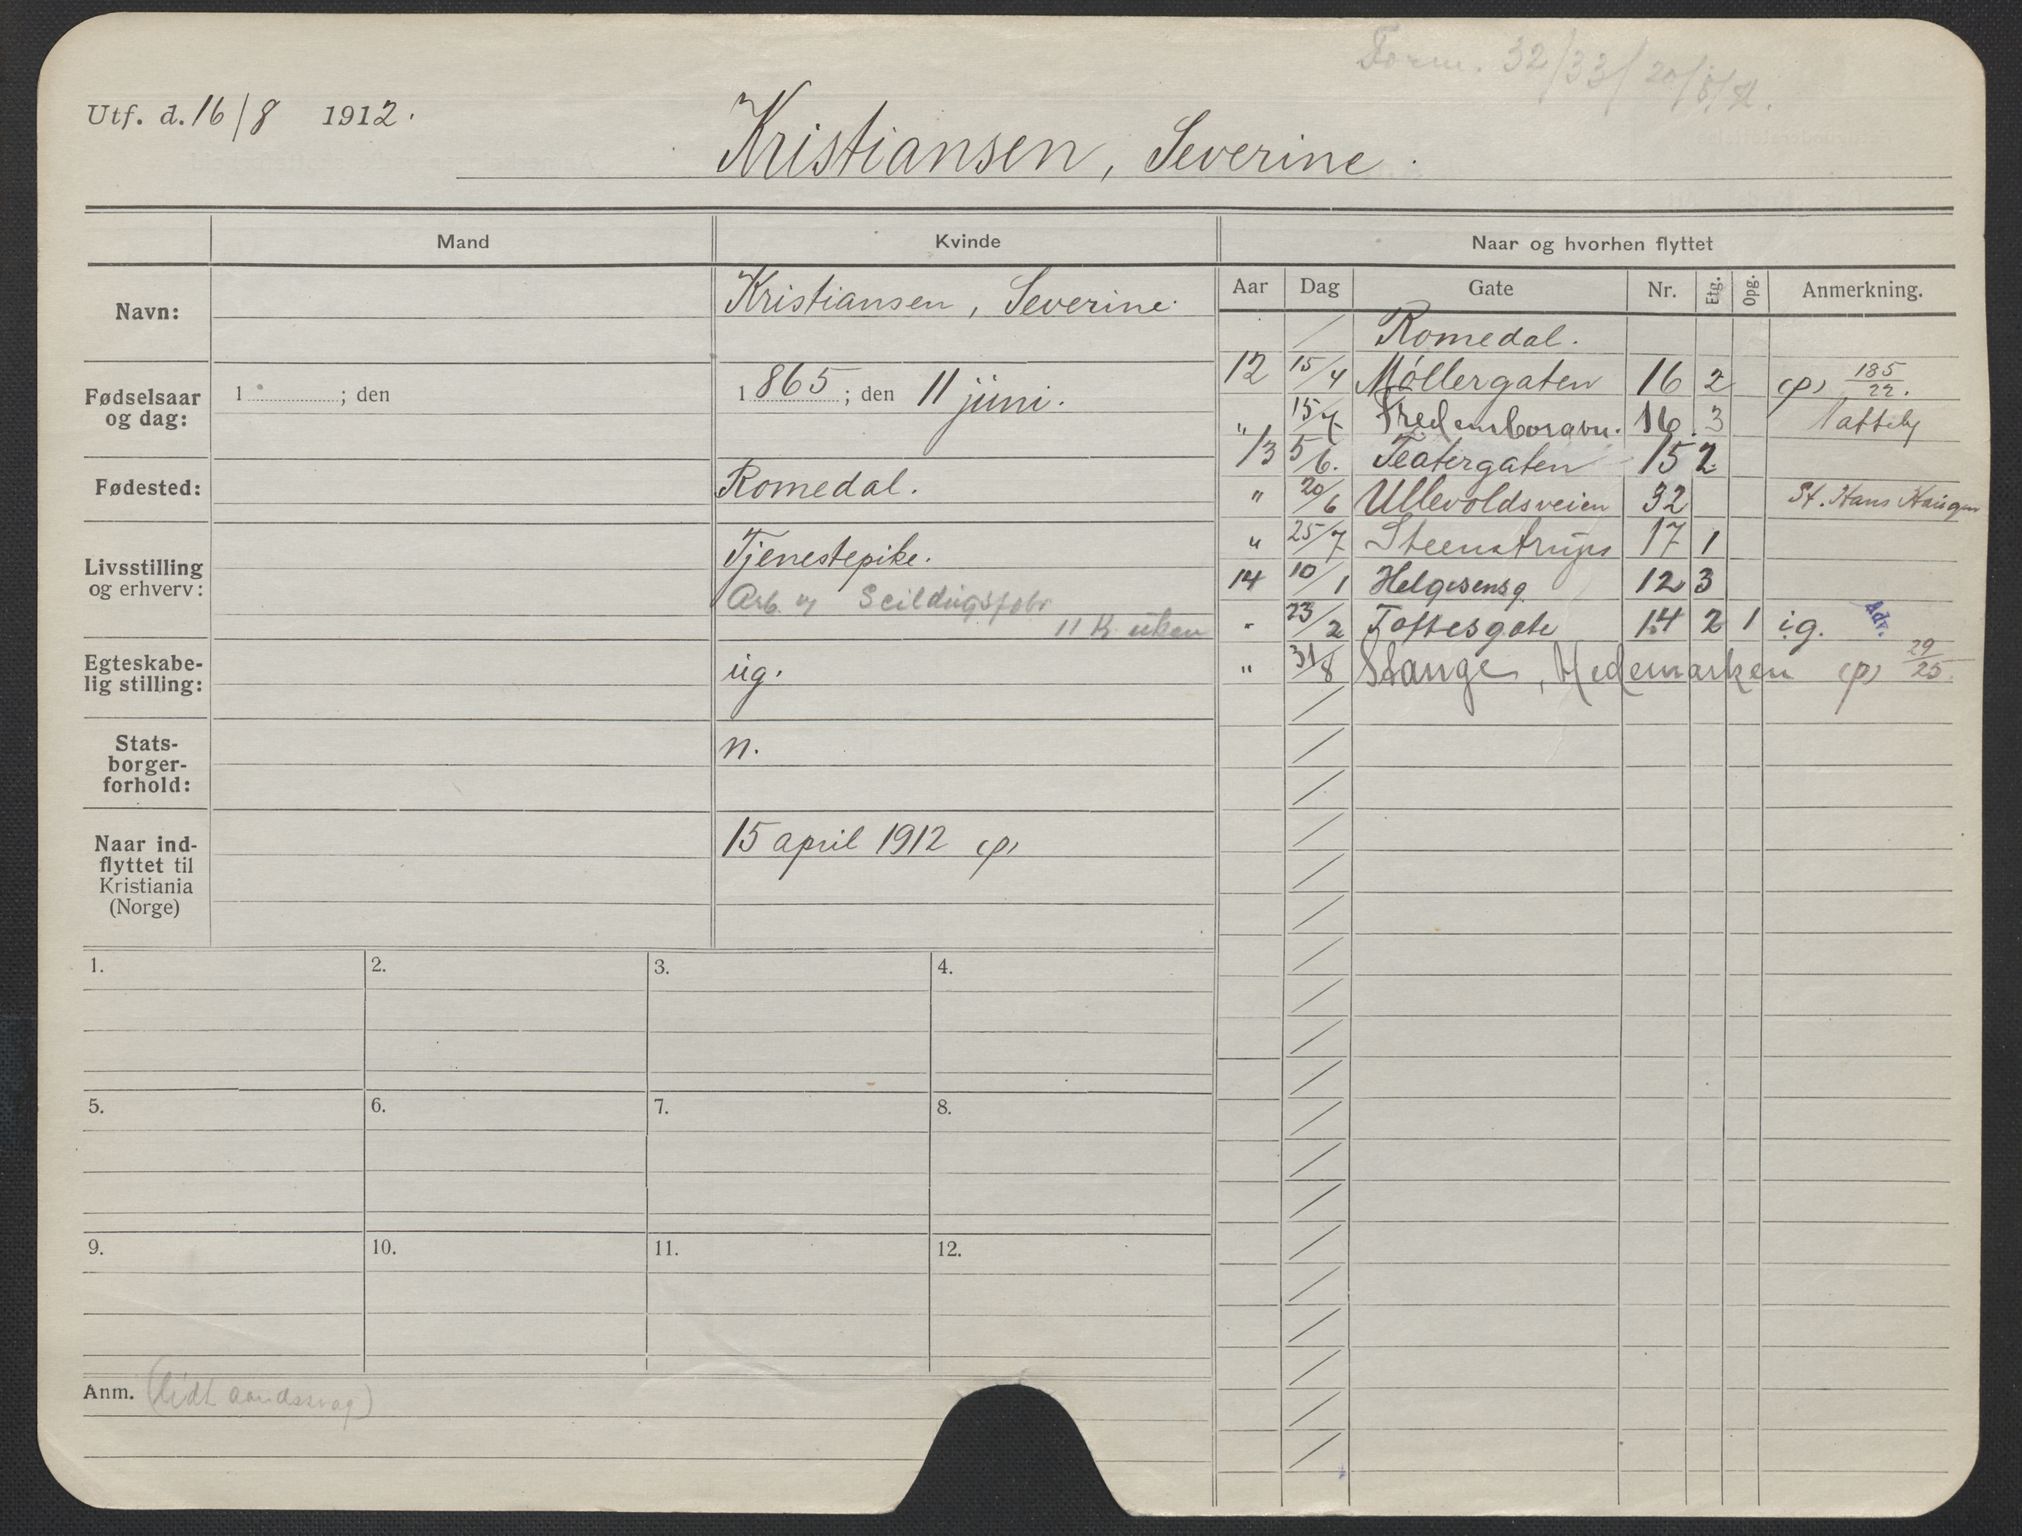 Utf. d. 16/8 1912.
Kristiansen, Severine.
Mand
Kvinde
Naar og hvorhen flyttet
Navn:
Kristiansen, Severine.
Fødselsaar og dag:
1 ; den
1865; den 11 juni.
Fødested:
Romedal.
Livsstilling og erhverv:
Tjenestepike.
Arb. v Seildugsfabr
11 K uken
Egteskabe-
lig stilling:
ug.
Stats-
borger-
forhold:
n.
Naar ind-
flyttet til
Kristiania
(Norge)
15 april 1912 (p)
Aar Dag Gate Nr. Etg. Opg. Anmerkning.
/ Romedal.
12 15/4 Møllergaten 16 2 (p) 185/22.
" 15/7 16. 3
13 5/6. Teatergaten 15 2
" 20/6 Ullevoldsveien 32 St. Hans Haugen
" 25/7 Steenstrups 17 1
14 10/1 Helgesensg 12 3
" 23/2 Toftesgate 14 2 1 ig. Adr.
" 31/8 Stange, Hedemarken (p) 29/25.
1. 2. 3. 4.
5. 6. 7. 8.
9. 10. 11. 12.
Anm. (lidt aandssvag)